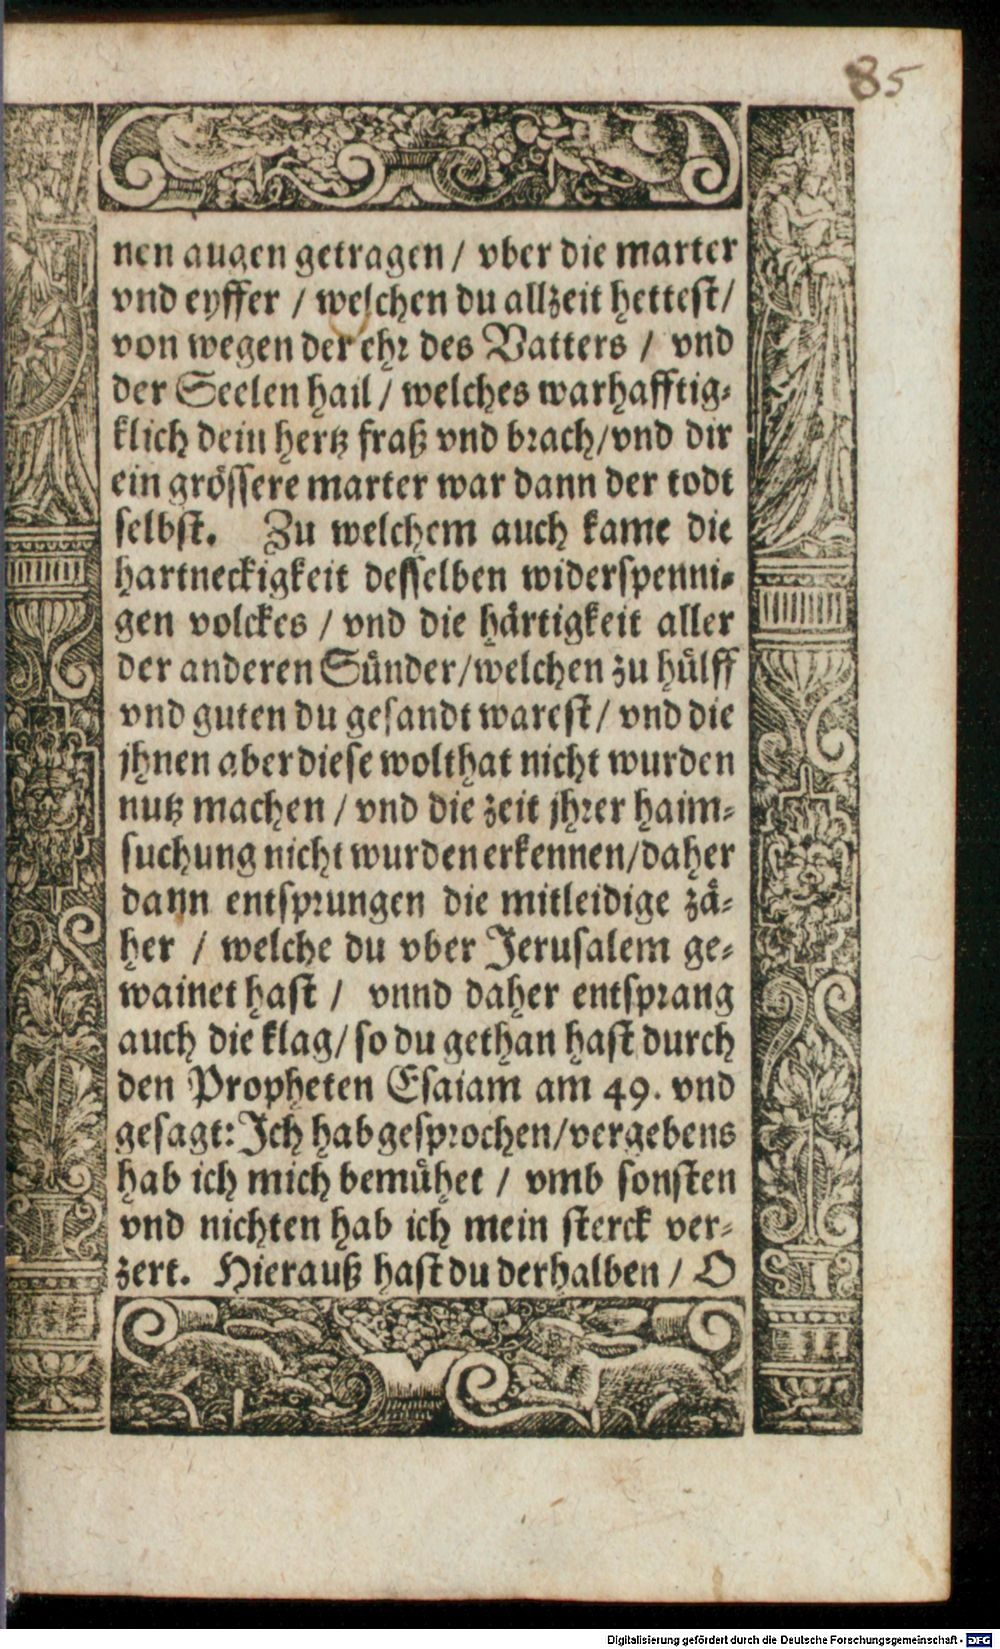 85
nen augen getragen / vber die marter
vnd eyffer / welchen du allzeit hettest/
von wegen der ehr des Vatters / vnd
der Seelen hail / welches warhafftig-
klich dein hertz fraß vnd brach/vnd dir
ein grössere marter war dann der todt
selbst. Zu welchem auch kame die
hartneckigkeit desselben widerspenni-
gen volckes / vnd die härtigkeit aller
der anderen Sünder/welchen zu hülff
vnd guten du gesandt warest/ vnd die
jhnen aber diese wolthat nicht wurden
nutz machen / vnd die zeit jhrer haim-
suchung nicht wurden erkennen/daher
dann entsprungen die mitleidige zä-
her / welche du vber Jerusalem ge-
wainet hast / vnnd daher entsprang
auch die klag/ so du gethan hast durch
den Propheten Esaiam am 49. vnd
gesagt: Ich hab gesprochen/vergebens
hab ich mich bemühet / vmb sonsten
vnd nichten hab ich mein sterck ver-
zert. Hierauß hast du derhalben / O
Digitalisierung gefördert durch die Deutsche Forschungsgemeinschaft - DFG